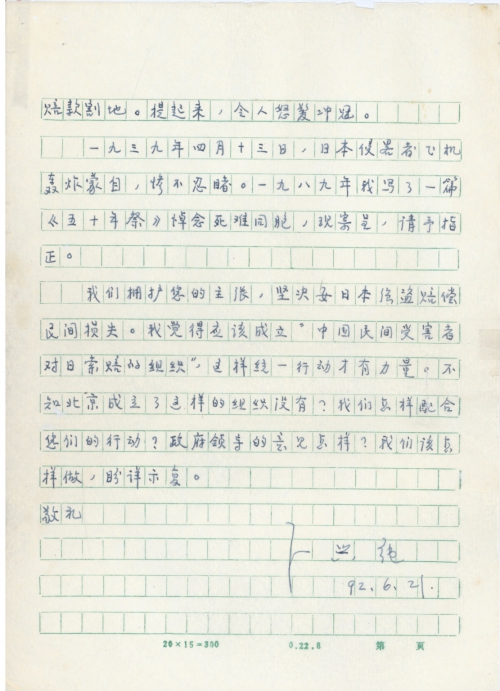 赔款割地。提起来，令人怒发冲冠。
一九三九年四月十三日，日本侵略者飞机
轰炸蒙自，惨不忍睹。一九八九年我写了一篇
《五十年祭》悼念死难同胞，现寄呈，请予指
正。
我们拥护您的主张，坚决要日本强盗赔偿
民间损失。我觉得应该成立“中国民间受害者
对日索赔的组织”，这样统一行动才有力量。不
知北京成立了这样的组织没有？我们怎样配合
您们的行动？政府领导的意见怎样？我们该怎
样做，盼详示复。
敬礼
92.6.21.
20×15=300 0.22.8 第 页